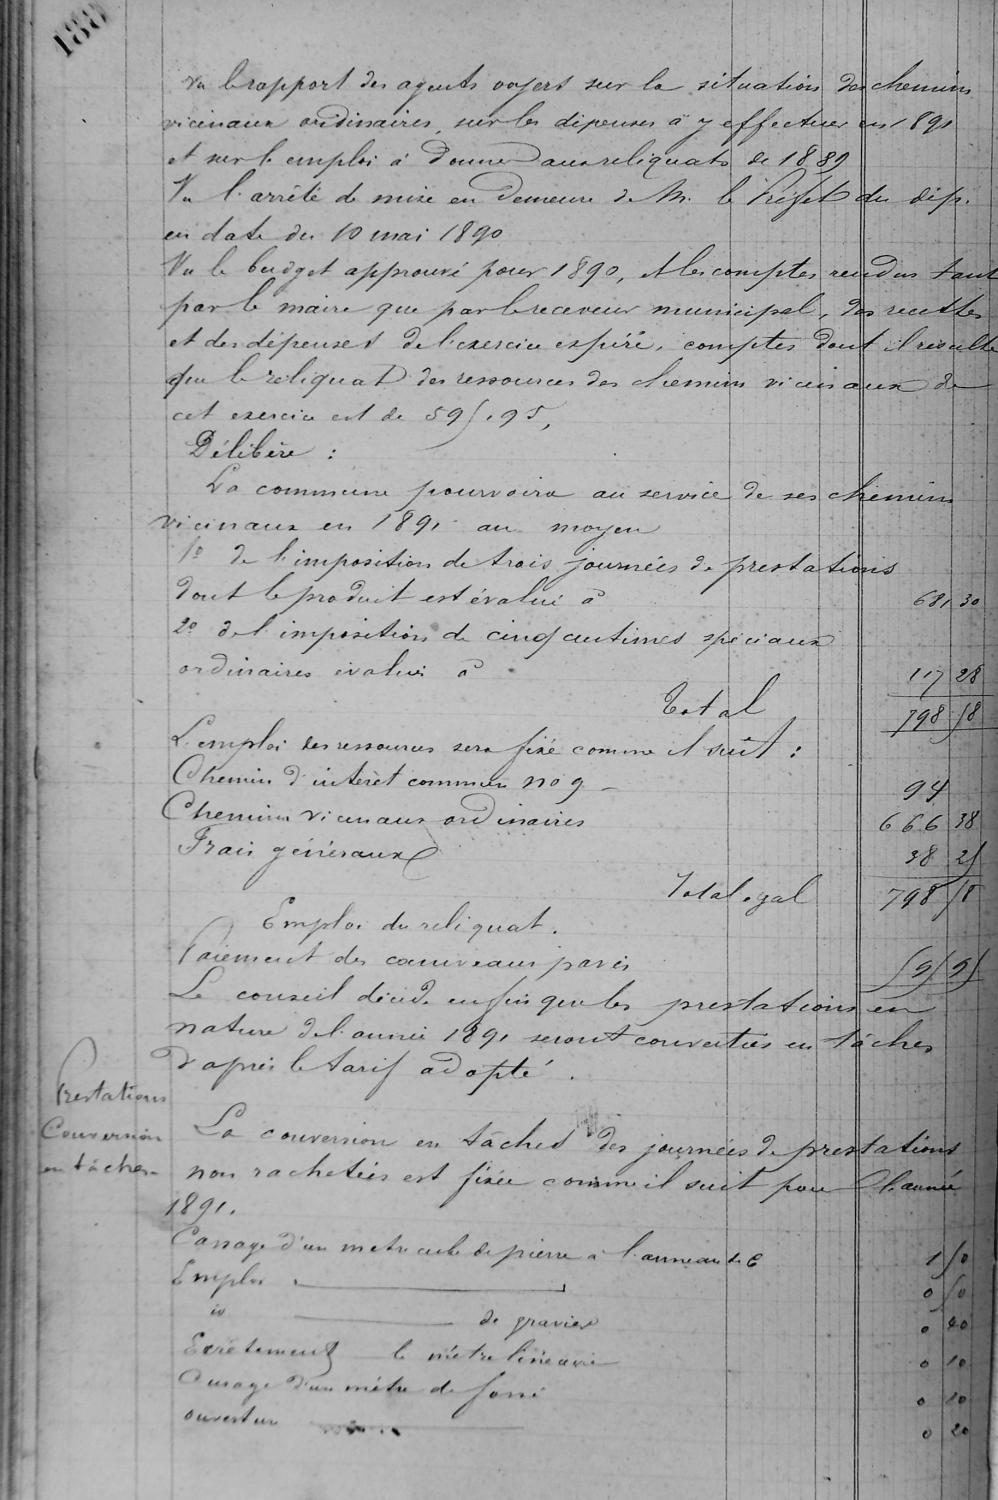 188
Vu le rapport des agents voyers sur la situation des chemins
vicinaux ordinaires, sur les dépenses à y effectuer en 1891
et sur l'emploi à donner aux reliquats de 1889
Vu l'arrêté de mise en demeure de M. le Préfet du dép.
en date du 10 mai 1890
Vu le budget approuvé pour 1890, et les comptes rendus tant
par le maire que par le receveur municipal, des recettes
et des dépenses de l'exercice expiré, comptes dont il résulte
que le reliquat des ressources des chemins vicinaux de
cet exercice est de 595,95,
Délibère :
La commune pourvoira au service de ses chemins
vicinaux en 1891 au moyen
1º de l'imposition de trois journées de prestations
dont le produit est évalué à 681 30
2º de l'imposition de cinq centimes spéciaux
ordinaires évalués à 117 28
Total 798 58
L'emploi des ressources sera fixé comme il suit :
Chemin d'intérêt commun no 9 – 94
Chemins vicinaux ordinaires 666 38
Frais généraux 38 25
Total égal 798 58
Emploi du reliquat.
Paiement des caniveaux pavés 595 95
Le conseil décide enfin que les prestations en
nature de l'année 1891 seront converties en tâches
d'après le tarif adopté.
Prestations
Conversion
en tâches
La conversion en tâches des journées de prestations
non rachetées est fixée comme il suit pour l'année
1891.
Cassage d'un mètre cube de pierre à l'anneau de 6 1 50
Emploi 0 50
id de gravier 0 40
Ecrêtement le mètre linéaire 0 10
Curage d'un mètre de fossé 0 10
ouverture 0 20